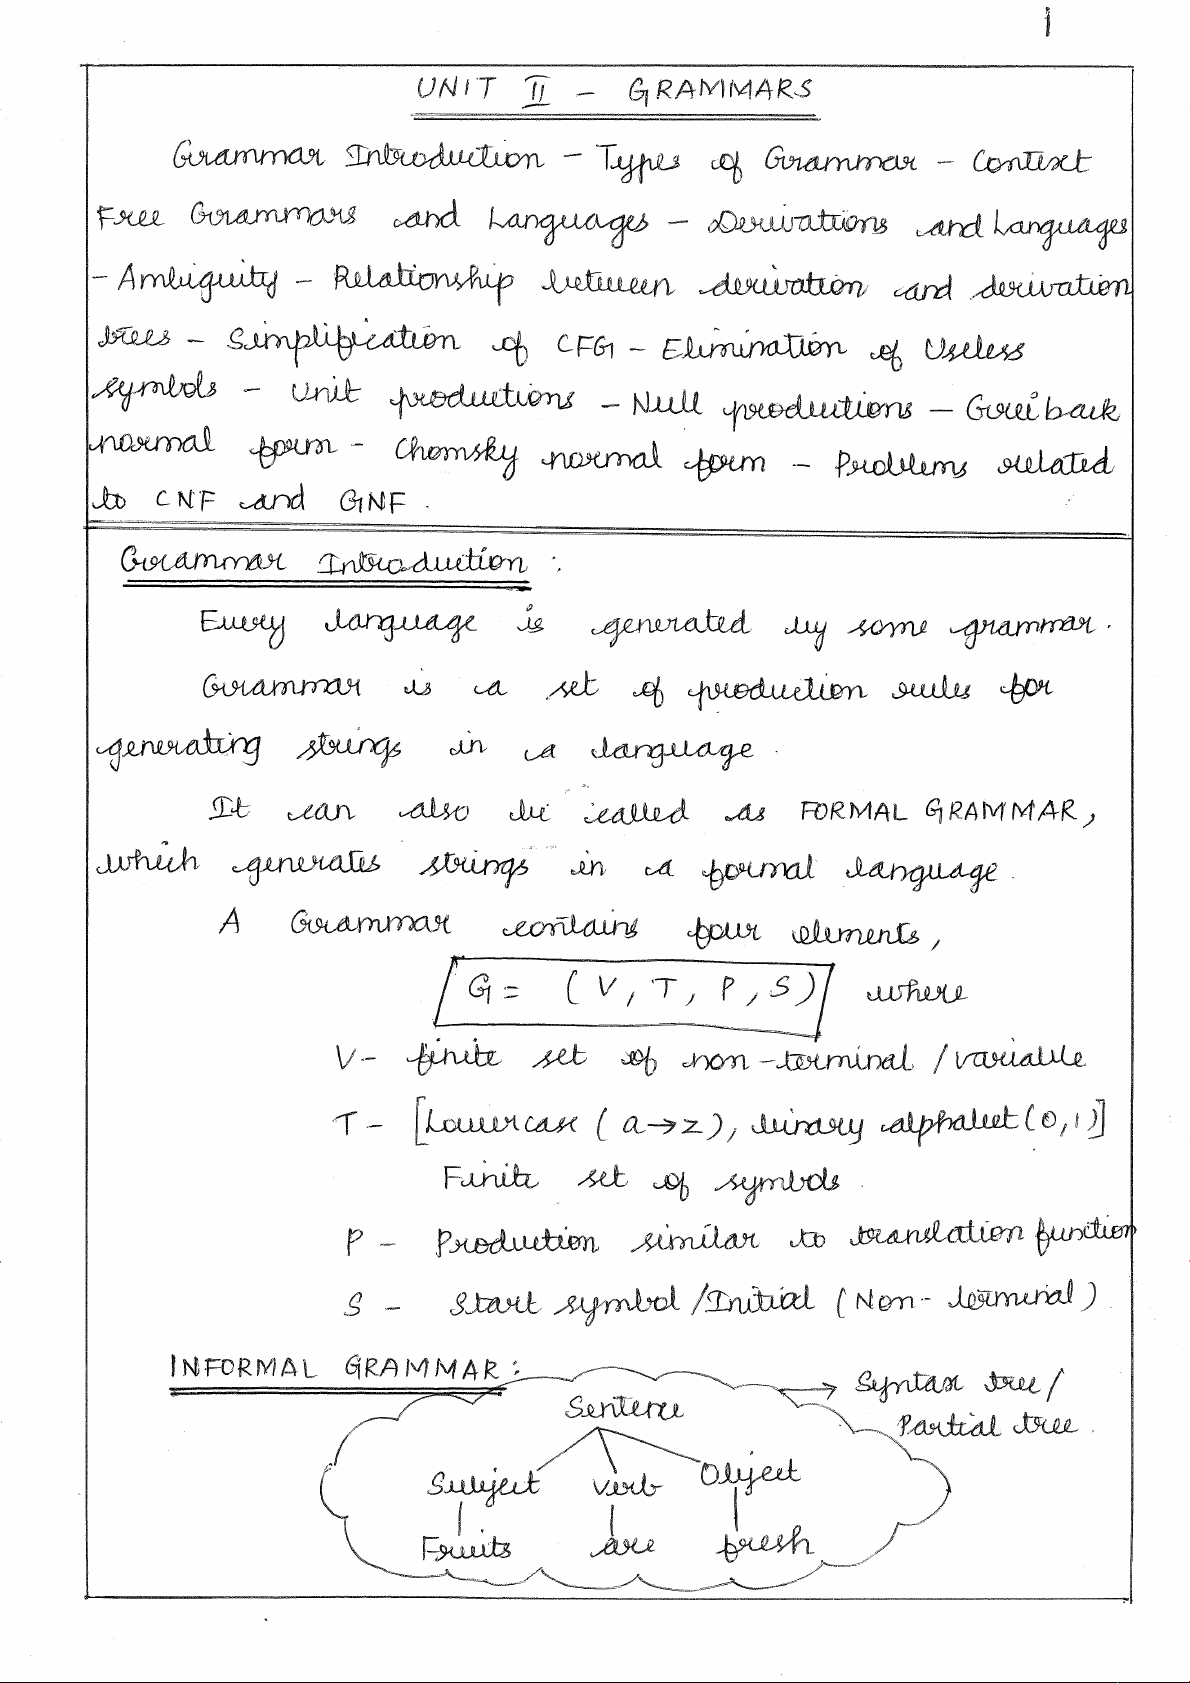 1
UNIT II - GRAMMARS
Grammar Introduction - Types of Grammar - Context
Free Grammars and Languages - Derivations and Languages
- Ambiguity - Relationship between derivation and derivation
trees - Simplification of CFG - Elimination of Useless
symbols - Unit productions - Null productions - Greiback
normal form - Chomsky normal form - Problems related
to CNF and GNF.
Grammar Introduction :
Every language is generated by some grammar.
Grammar is a set of production rules for
generating strings in a language.
It can also be called as FORMAL GRAMMAR,
which generates strings in a formal language.
A Grammar contains four elements,
G = (V, T, P, S) where
V - finite set of non-terminal / variable
T - [Lowercase (a→z), binary alphabet (0,1)]
Finite set of symbols.
P - Production similar to translation function
S - Start symbol / Initial (Non-terminal).
INFORMAL GRAMMAR :
→ Syntax tree /
Partial tree.
Sentence
Subject verb Object
Fruits are fresh